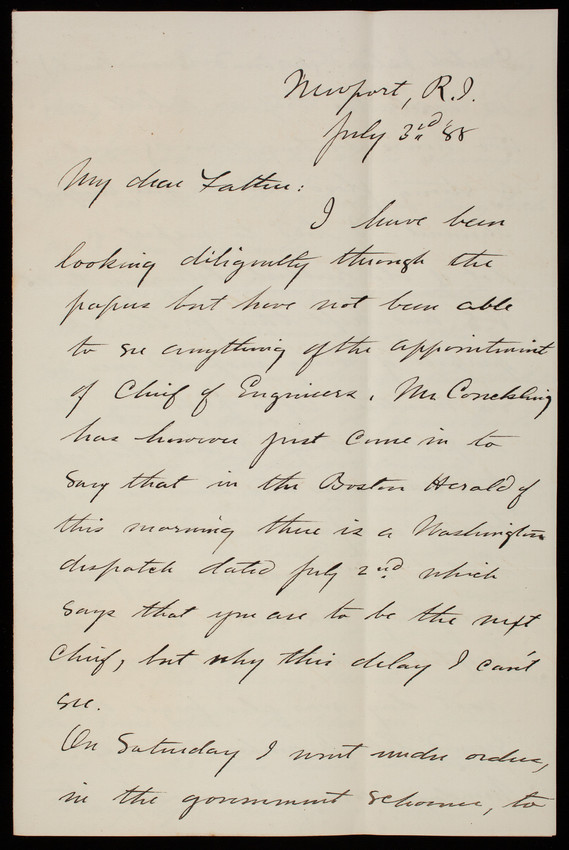 Newport, R.I.
July 3rd '88
My dear Father:
I have been
looking diligently through the
papers but have not been able
to see anything of the appointment
of Chief of Engineers. Mr Conckling
has however just come in to
say that in the Boston Herald of
this morning there is a Washington
dispatch dated July 2nd which
says that you are to be the next
Chief, but why this delay I can't
see.
On Saturday I went under orders,
in the government schooner, to